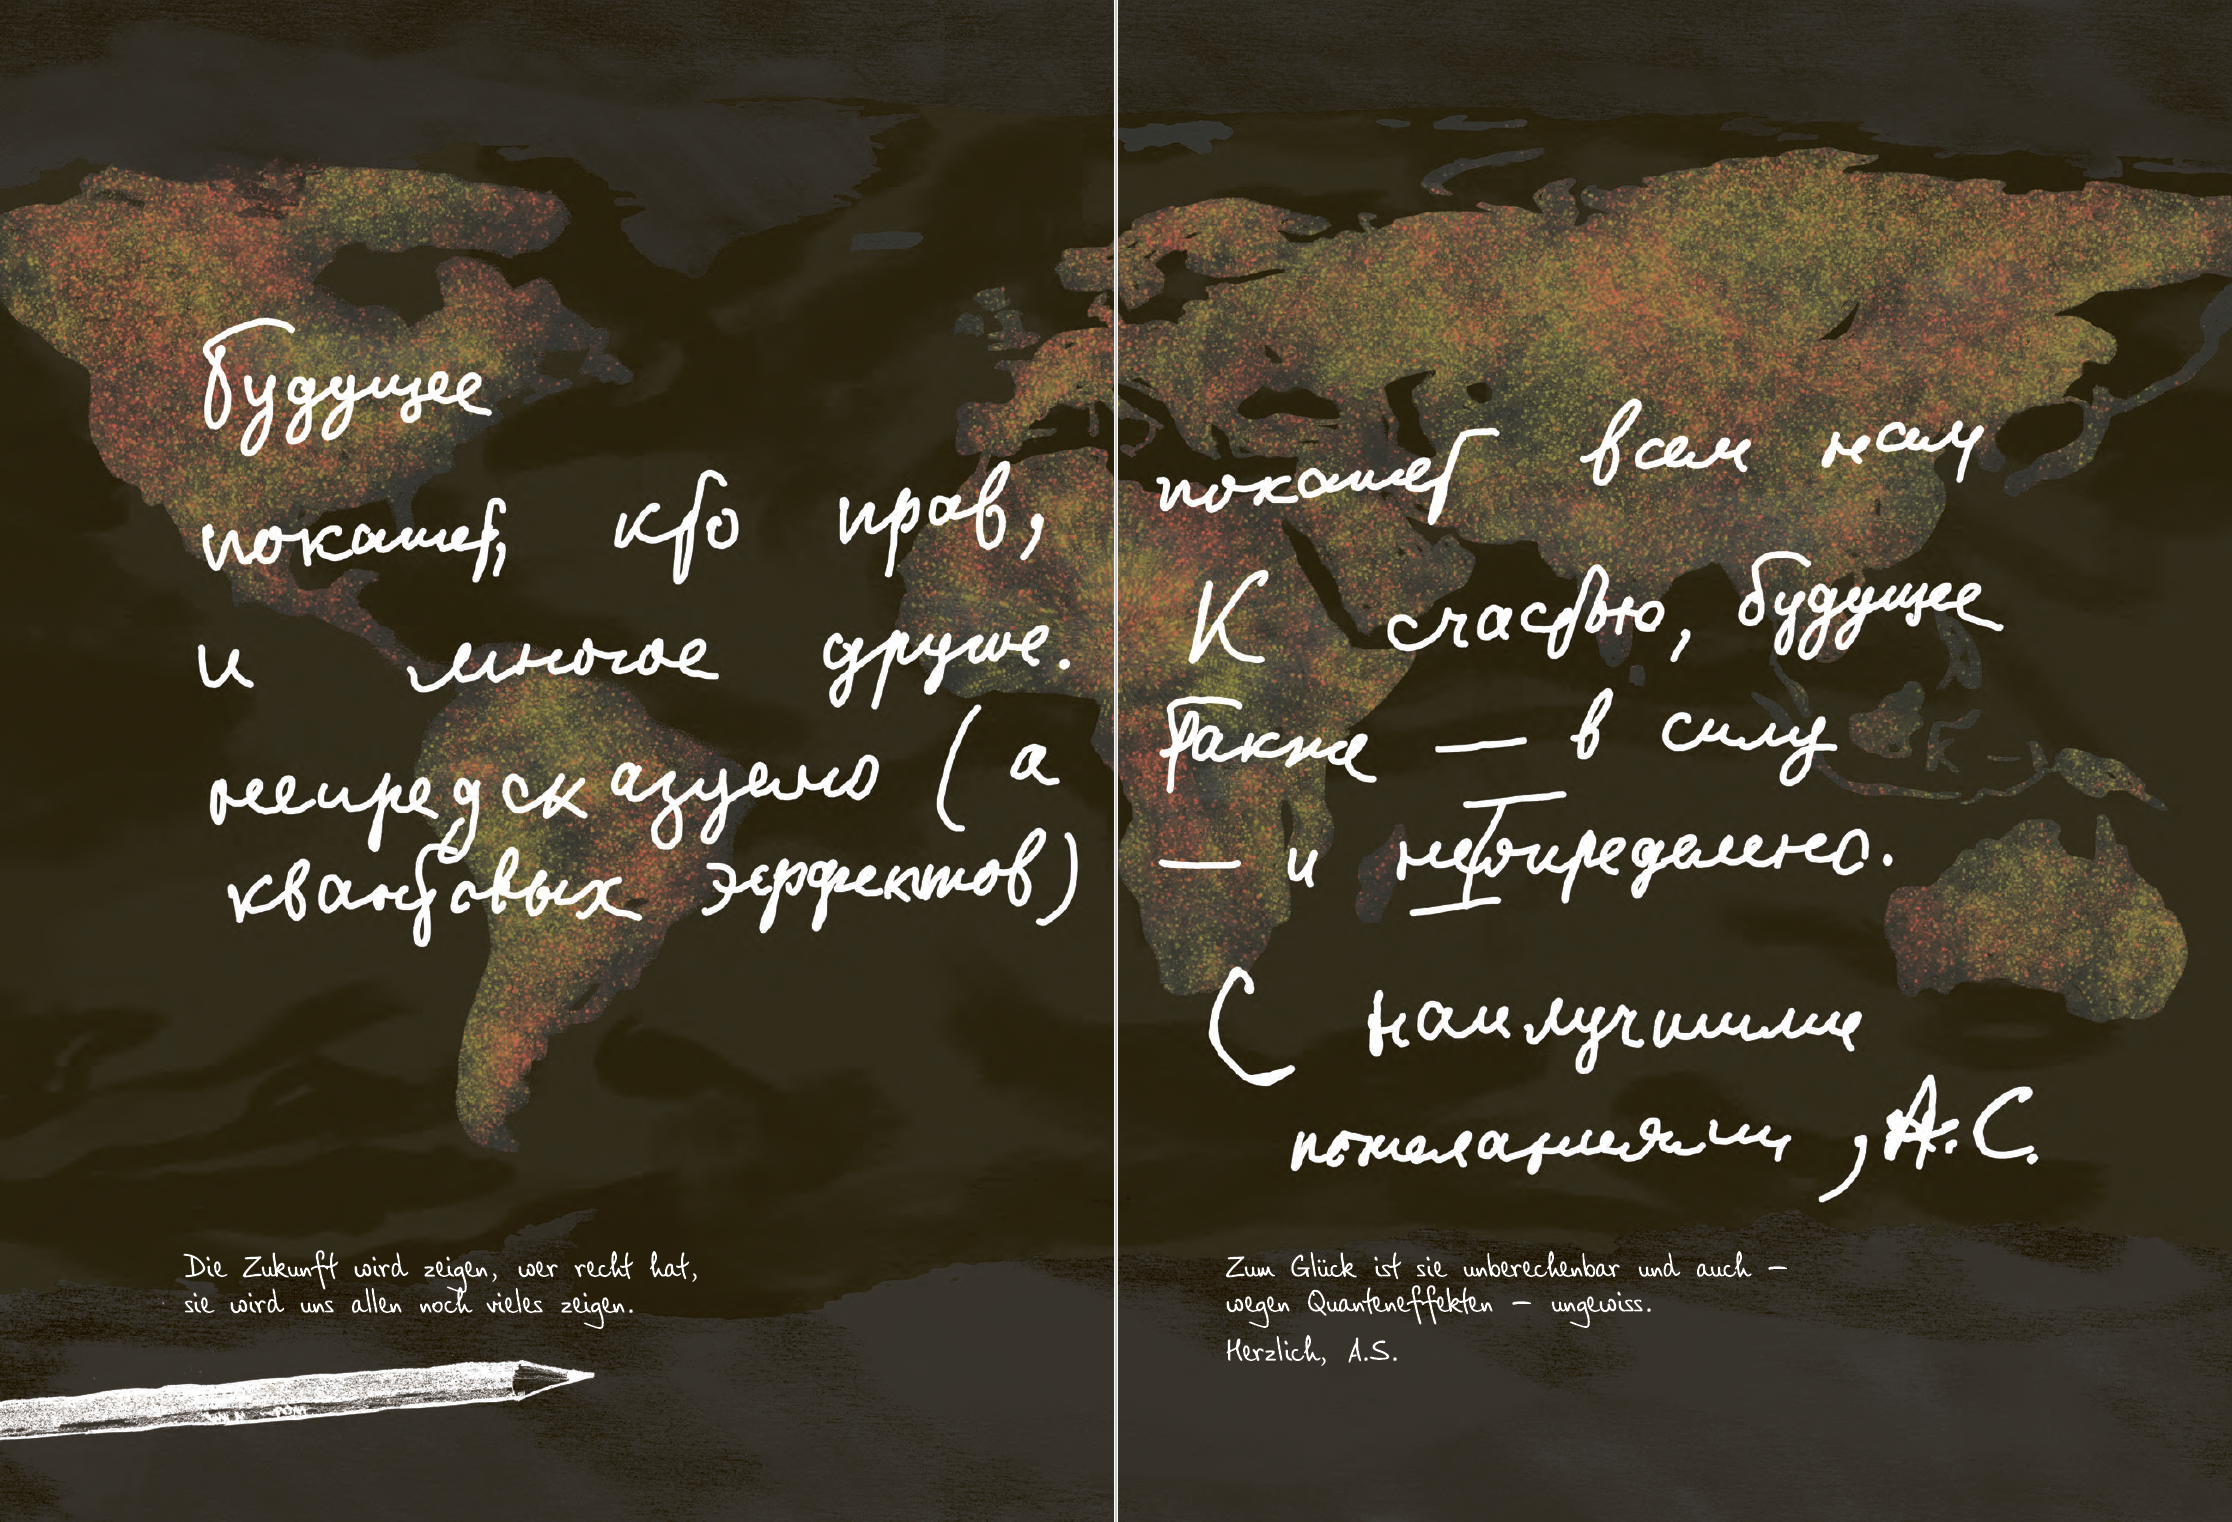 будущее
покажет, кто прав, покажет всем нам
и многое другое. К счастью, будущее
непредсказуемо (а также — в силу
квантовых эффектов) — и неопределено.
С наилучшими
пожеланиями, А.С.
Die Zukunft wird zeigen, wer recht hat,
sie wird uns allen noch vieles zeigen.
Zum Glück ist sie unberechenbar und auch –
wegen Quanteneffekten – ungewiss.
Herzlich, A.S.